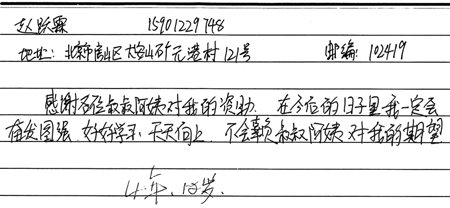 赵跃霖 15901229748
地址: 北京市房山区大安山矿元港村121号 邮编: 102419
感谢各位叔叔阿姨对我的资助. 在今后的日子里我一定会
奋发图强 好好学习, 天天向上. 不会辜负叔叔阿姨对我的期望